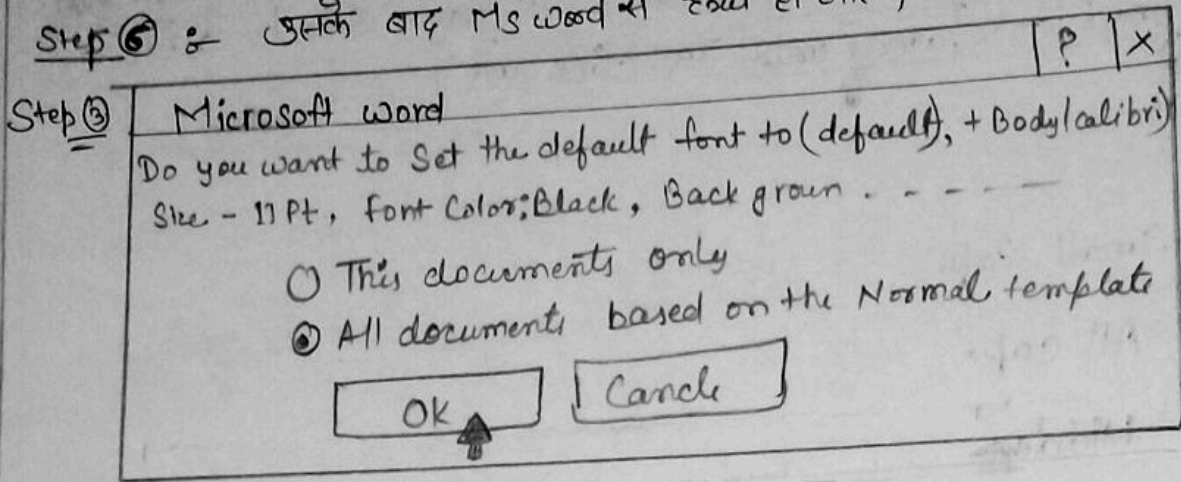 Step ⑥ :- उसके बाद Ms word
? X
Step ③ Microsoft word
Do you want to Set the default font to (default), + Body(calibri)
Size - 11 Pt, font Color: Black, Back groun . - - - -
This documents only
All documents based on the Normal template
OK Cancle